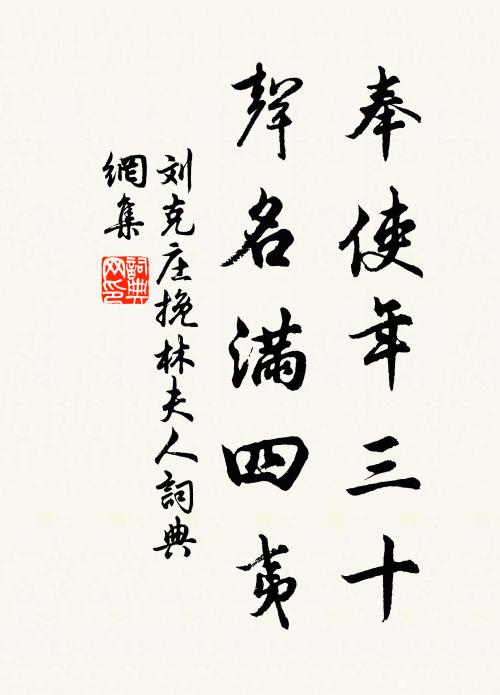 奉使年三十
聲名滿四夷
刘克庄挽林夫人詞典
網集
詞典
网印